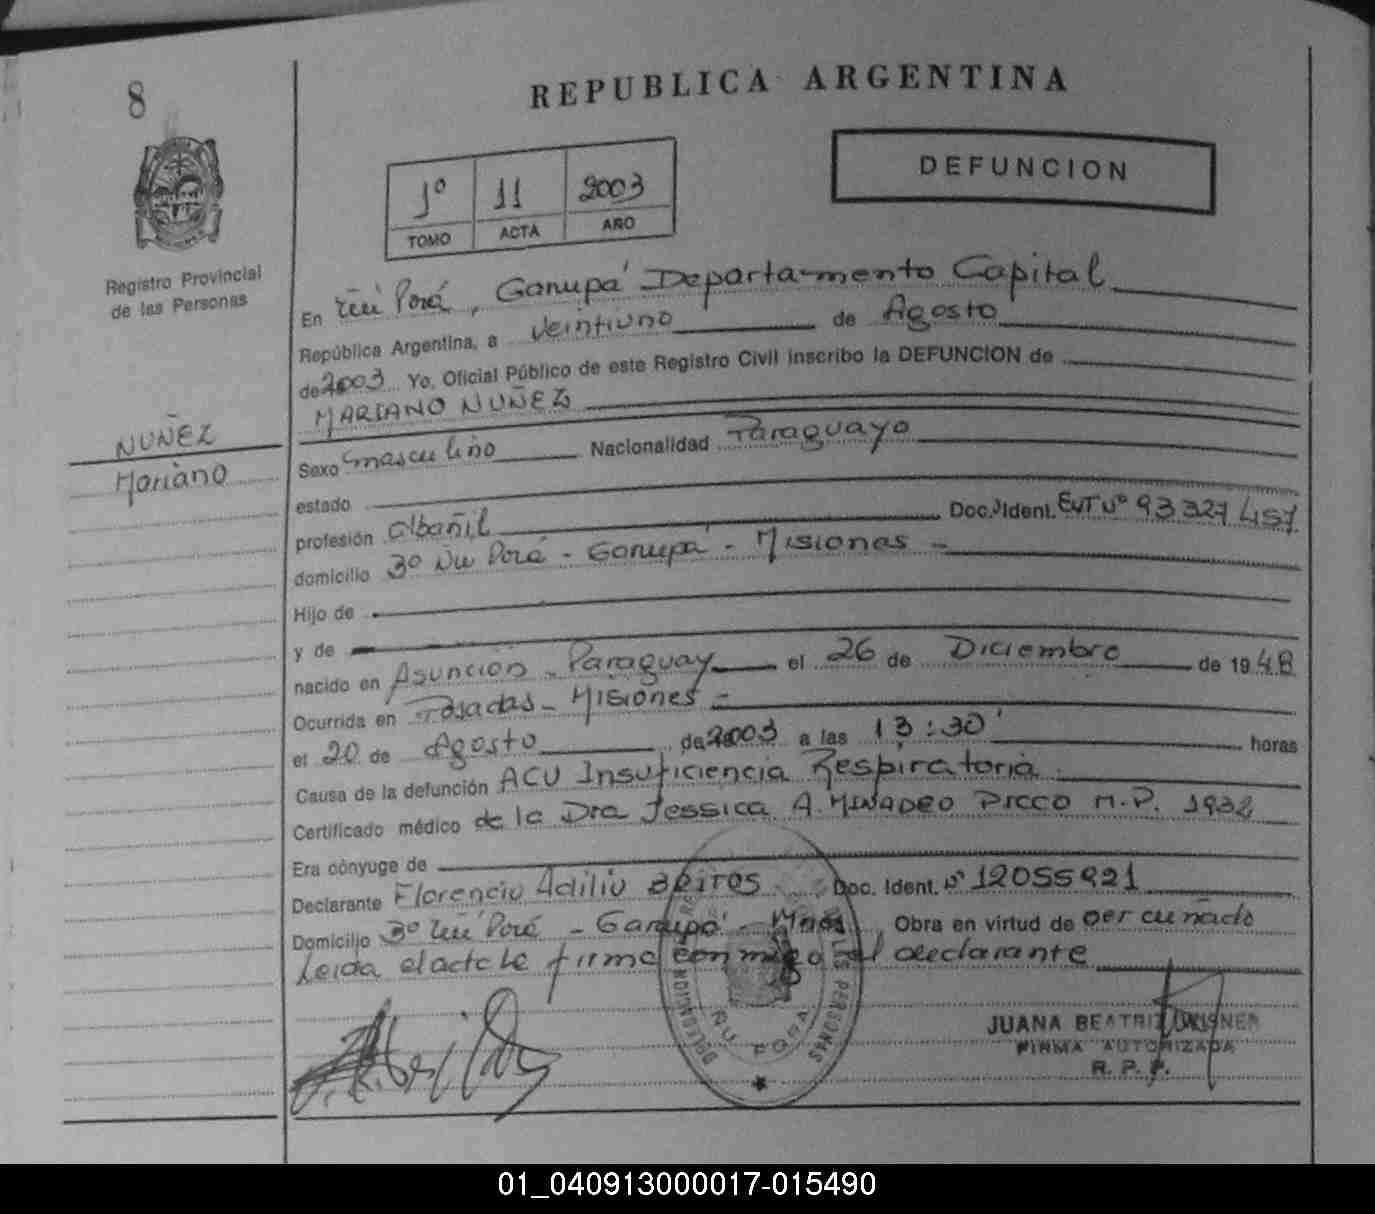 8
REPUBLICA ARGENTINA
DEFUNCION
1º 11 2003
TOMO ACTA AÑO
Registro Provincial
de las Personas
En Ñu Porá, Garupá Departamento Capital
República Argentina, a veintiuno de Agosto
de 2003 Yo, Oficial Público de este Registro Civil inscribo la DEFUNCION de
MARIANO NUÑEZ
NUÑEZ
Mariano
Sexo masculino Nacionalidad Paraguayo
estado
profesión albañil Doc. Ident. Nº 93.327.457
domicilio 3º Ñu Porá - Garupá - Misiones -
Hijo de
y de
nacido en Asunción - Paraguay el 26 de Diciembre de 1948
Ocurrida en Posadas - Misiones -
el 20 de Agosto de 2003 a las 13:30' horas
Causa de la defunción ACU Insuficiencia Respiratoria
Certificado médico de la Dra Jessica A. MINADEO PICCO M.P. 1932
Era cónyuge de
Declarante Florencio Adilio BRITOS Doc. Ident. Nº 12055921
Domicilio 3º Ñu Porá - Garupá - Mnes. Obra en virtud de ser cuñado
Leida el acta le firma conmigo el declarante
DELEGACION REG. DE LAS PERSONAS
ÑU PORA
JUANA BEATRIZ
FIRMA AUTORIZADA
R. P. P.
01_040913000017-015490